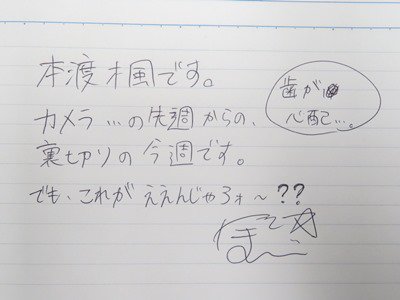 本渡楓です。
カメラ…の先週からの、
裏切りの今週です。
でも、これがええんじゃろォ～??
歯が
心配…。